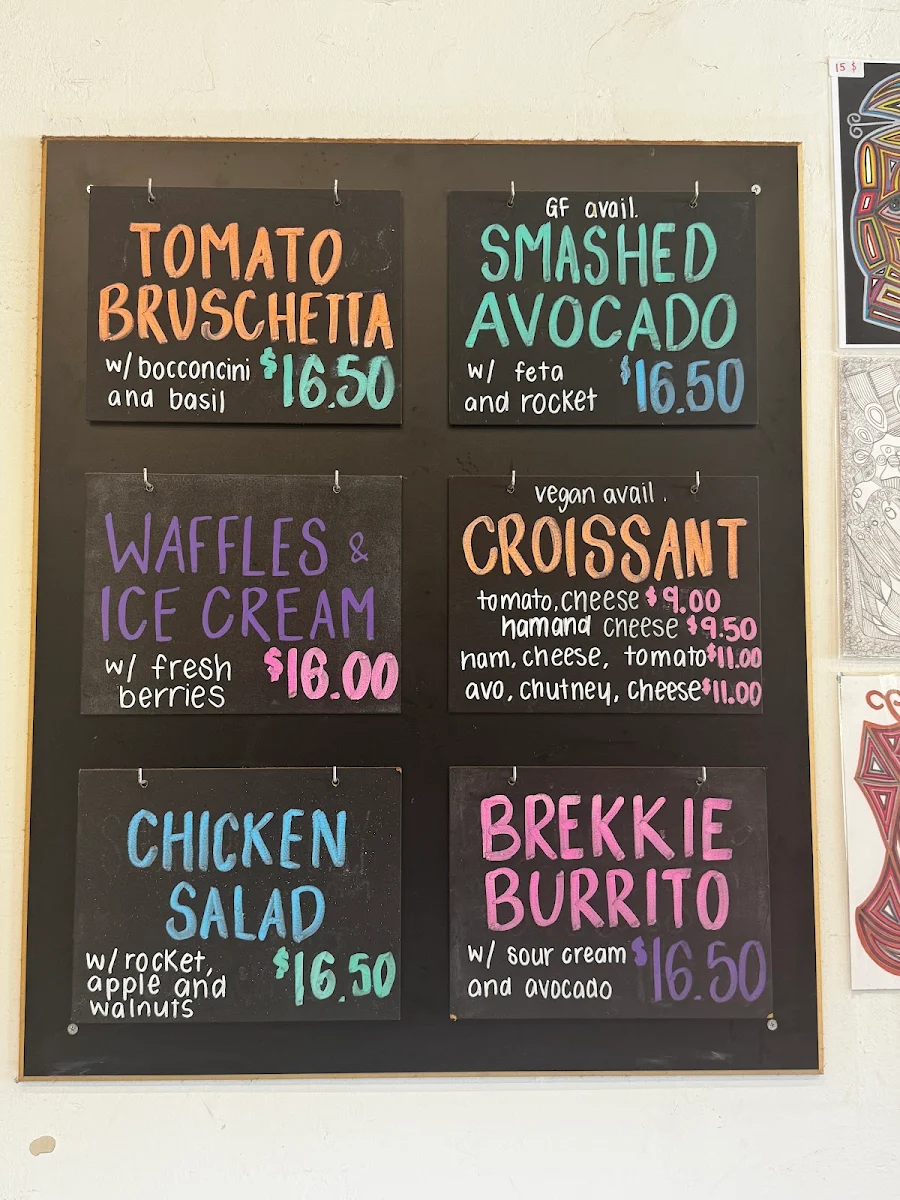 15 $
TOMATO
BRUSCHETTA
w/ bocconcini
and basil
$16.50
GF avail.
SMASHED
AVOCADO
w/ feta
and rocket
$16.50
WAFFLES &
ICE CREAM
w/ fresh
berries
$16.00
vegan avail.
CROISSANT
tomato, cheese $9.00
ham and cheese $9.50
ham, cheese, tomato $11.00
avo, chutney, cheese $11.00
CHICKEN
SALAD
w/ rocket,
apple and
walnuts
$16.50
BREKKIE
BURRITO
w/ sour cream
and avocado
$16.50